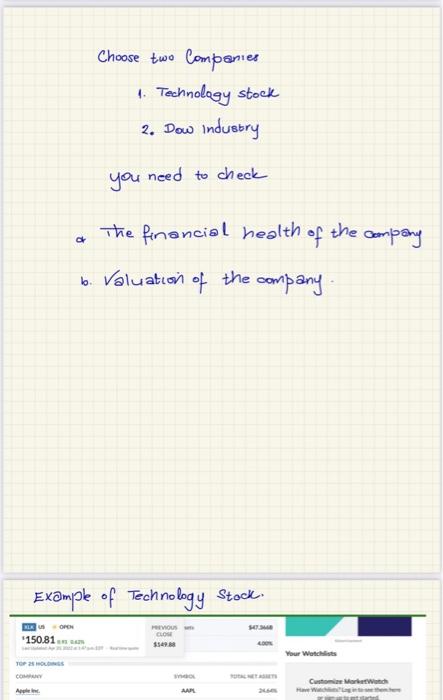 Choose two Companies
1. Technology stock
2. Dow Industry
you need to check
a The financial health of the company
b. Valuation of the company.
Example of Technology Stock.
XLK US OPEN
$150.81
PREVIOUS CLOSE
$149.88
4.00%
Your Watchlists
TOP 25 HOLDINGS
COMPANY SYMBOL TOTAL NET ASSETS
Apple Inc. AAPL
Customize MarketWatch